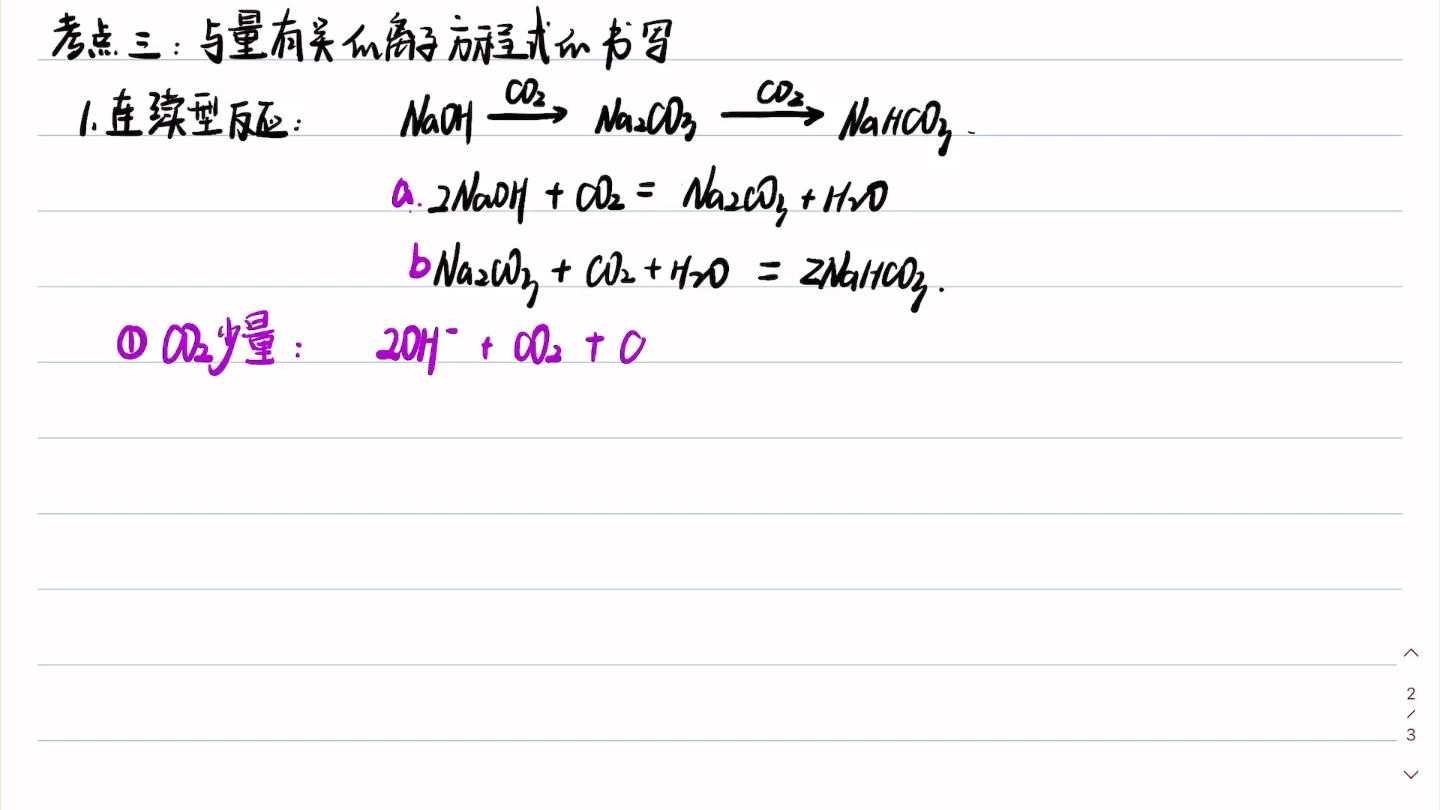 考点三：与量有关的离子方程式的书写
1.连续型反应： NaOH —CO₂→ Na₂CO₃ —CO₂→ NaHCO₃.
a. 2NaOH + CO₂ = Na₂CO₃ + H₂O
b Na₂CO₃ + CO₂ + H₂O = 2NaHCO₃.
① CO₂少量： 2OH⁻ + CO₂ + C
2/3